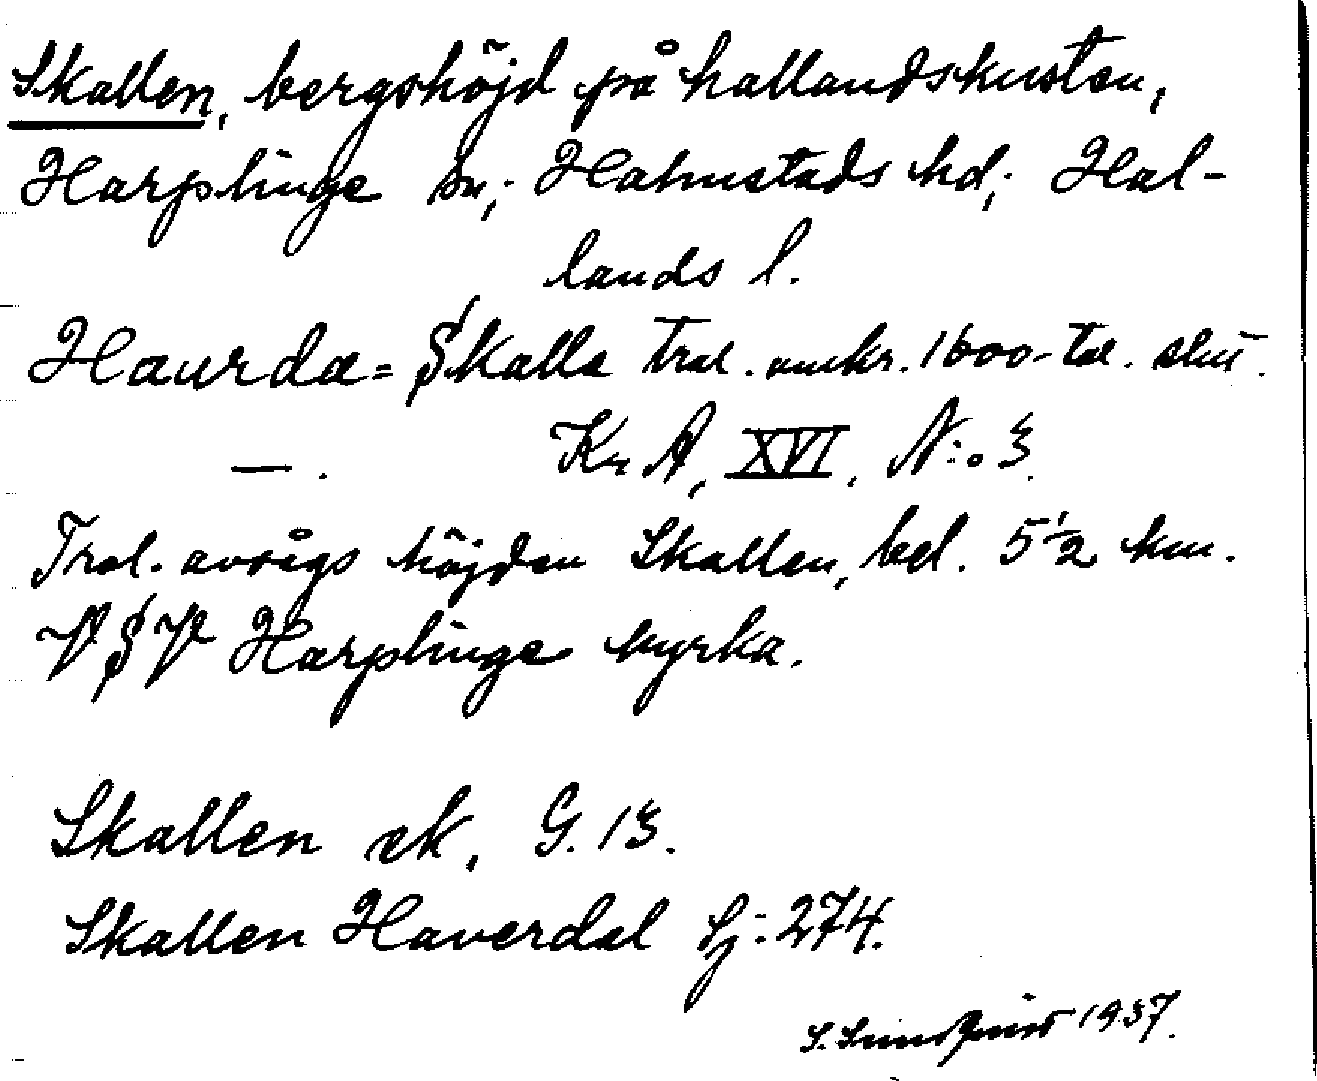 Skallen, bergshöjd på hallandskusten,
Harplinge sn; Halmstads hd; Hal-
lands l.
Haurda= Skalla trol. omkr. 1600-tal. slut.
—. Kr A, XVI, N:o 3.
Trol. avsegs höjden Skallen, bel. 5 1/2 km.
VSV Harplinge kyrka.
Skallen ek, G. 13.
Skallen Haverdal Sj: 274.
S. Lundquist 1937.